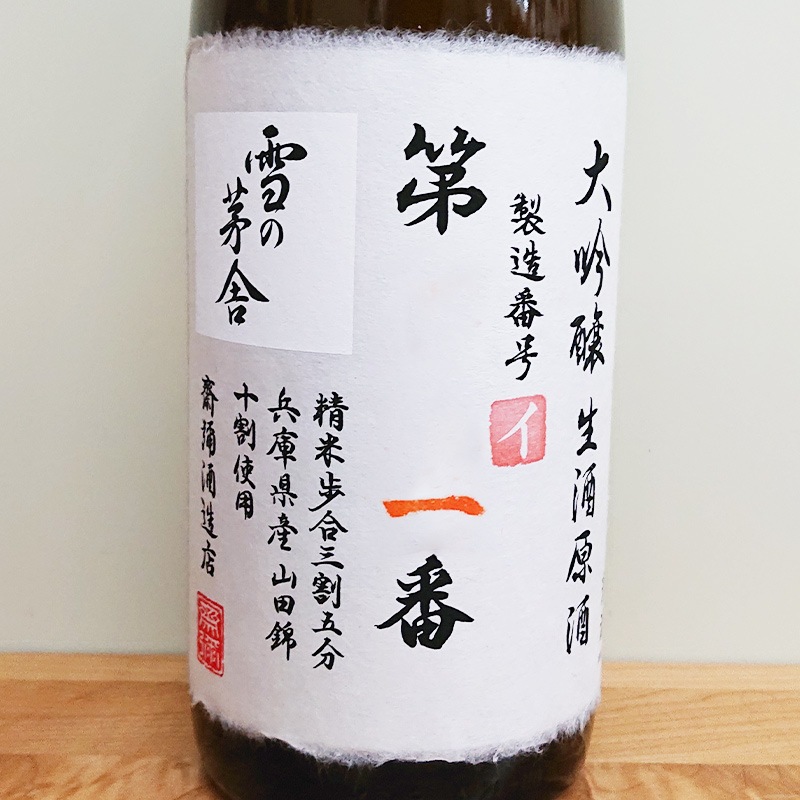 大吟醸 生酒原酒
製造番号
イ
第一番
精米歩合三割五分
兵庫県産山田錦
十割使用
齋彌酒造店
雪の
茅舎